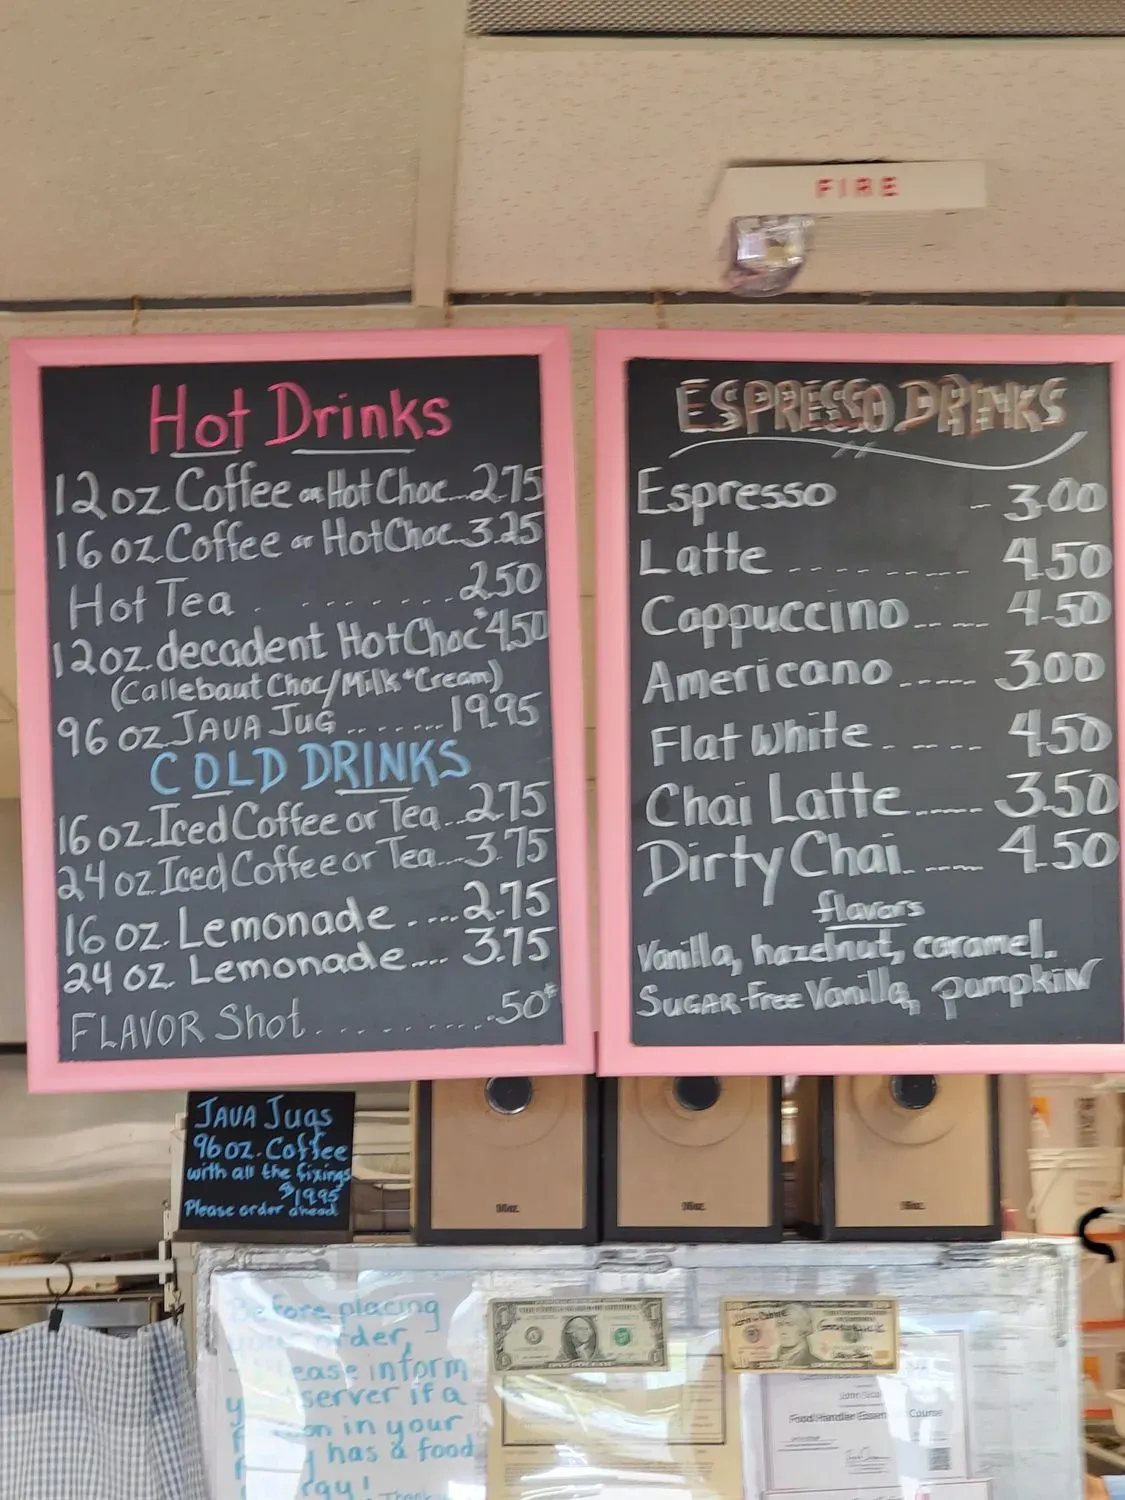 FIRE
Hot Drinks
12oz Coffee or Hot Choc...2.75
16oz Coffee or Hot Choc..3.25
Hot Tea . . . . . . . . . 2.50
12oz. decadent Hot Choc 4.50
(Callebaut Choc/Milk+Cream)
96 oz JAVA JUG ........ 19.95
COLD DRINKS
16 oz. Iced Coffee or Tea...2.75
24 oz Iced Coffee or Tea...3.75
16 oz. Lemonade ....2.75
24 oz. Lemonade.... 3.75
FLAVOR Shot . . . . . . . . . .50¢
ESPRESSO DRINKS
Espresso - 3.00
Latte - - - - - - - - - 4.50
Cappuccino ----- 4.50
Americano ----- 3.00
Flat White - - - - - 4.50
Chai Latte ..... 3.50
Dirty Chai ..... 4.50
flavors
Vanilla, hazelnut, caramel.
SUGAR-Free Vanilla, pumpkin
JAVA Jugs
96oz. Coffee
with all the fixings
$19.95
Please order ahead
Before placing
your order,
Please inform
your server if a
person in your
has a food
Thank
Food Handler Course